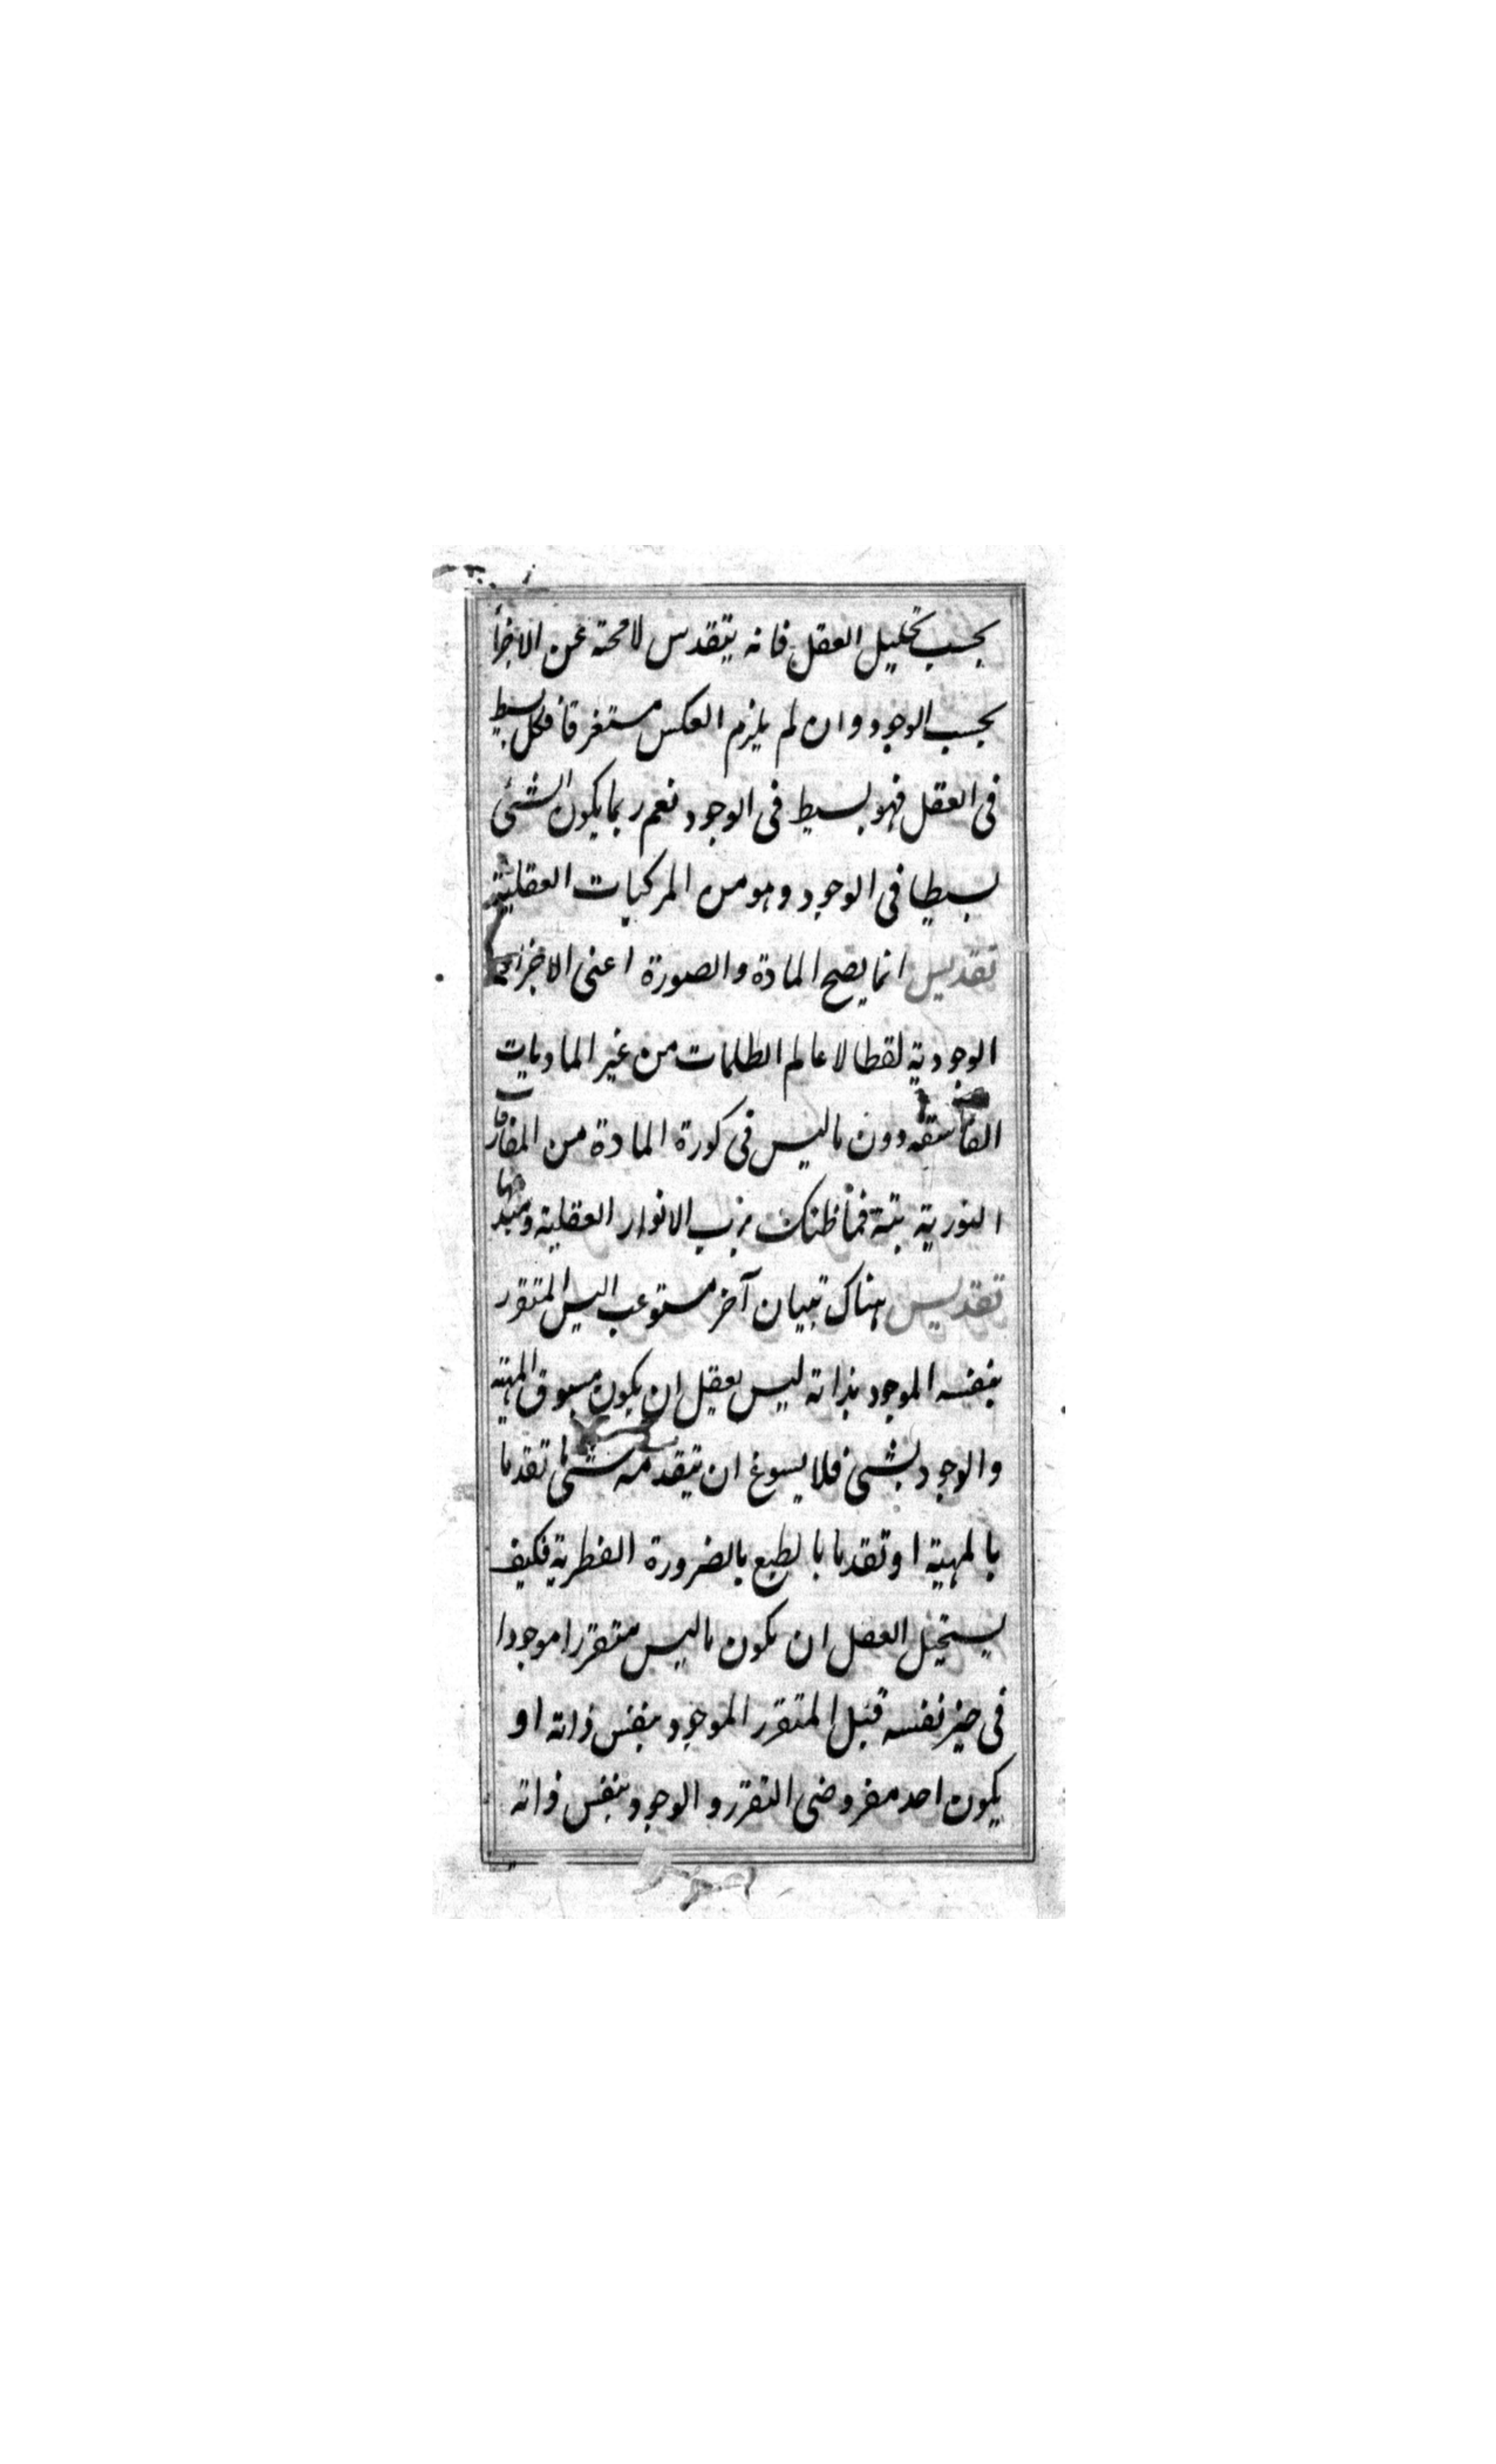 بحسب تحليل العقل فانه يتقدس لا محة عن الاجزأ
بحسب الوجود وان لم يلزم العكس مستغرقا فكل بسيط
فى العقل فهو بسيط فى الوجود نعم ربما يكون الشئ
بسيطا فى الوجود وهو من المركبات العقلية
تقديس انما يصح المادة والصورة اعنى الاجزاء
الوجودية لقطا لا عالم الظلمات من غير الماديات
الفاسقة دون ما ليس فى كورة المادة من المفارقات
النورية بتة فما ظنك برب الانوار العقلية ومبدئها
تقديس هناك تبيان آخر مستوعب اليس المتقرر
بنفسه الموجود بذاته ليس يعقل ان يكون مسبوق المهية
والوجود بشئ فلا يسوغ ان يتقدمه شئ تقدما
بالمهية او تقدما بالطبع بالضرورة الفطرية فكيف
يستحيل العقل ان يكون ما ليس متقررا موجودا
فى حيز نفسه قبل المتقرر الموجود بنفس ذاته او
يكون احد مفروضى التقرر والوجود بنفس ذاته